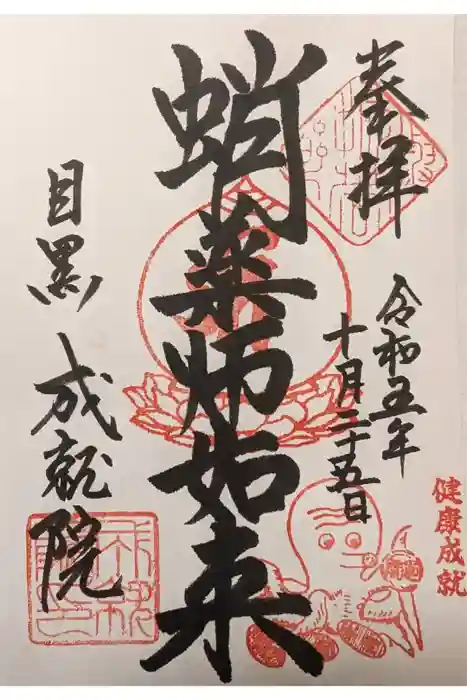 奉拝
令和五年
十月二十五日
健康成就
蛸薬師如来
目黒 成就院